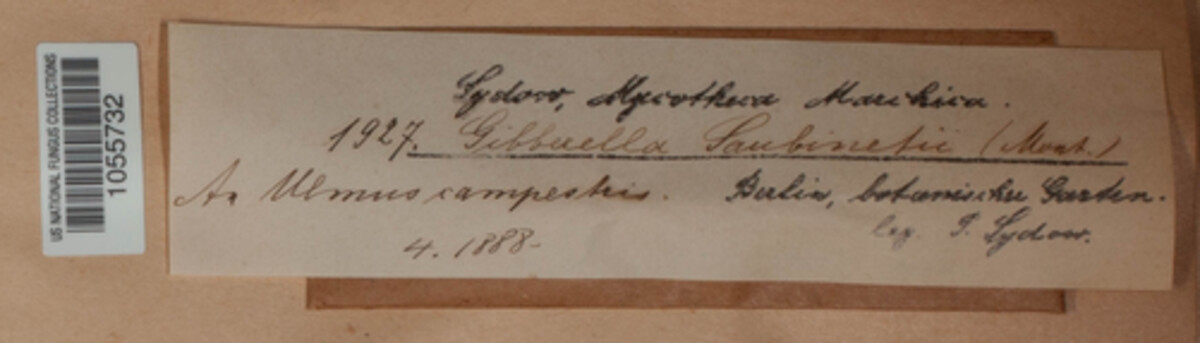 US NATIONAL FUNGUS COLLECTIONS
1055732
Sydow, Mycotheca Marchica.
1927. Gibberella Saubinetii (Mont.)
An Ulmus campestris. Berlin, botanischer Garten.
4. 1888. leg. P. Sydow.